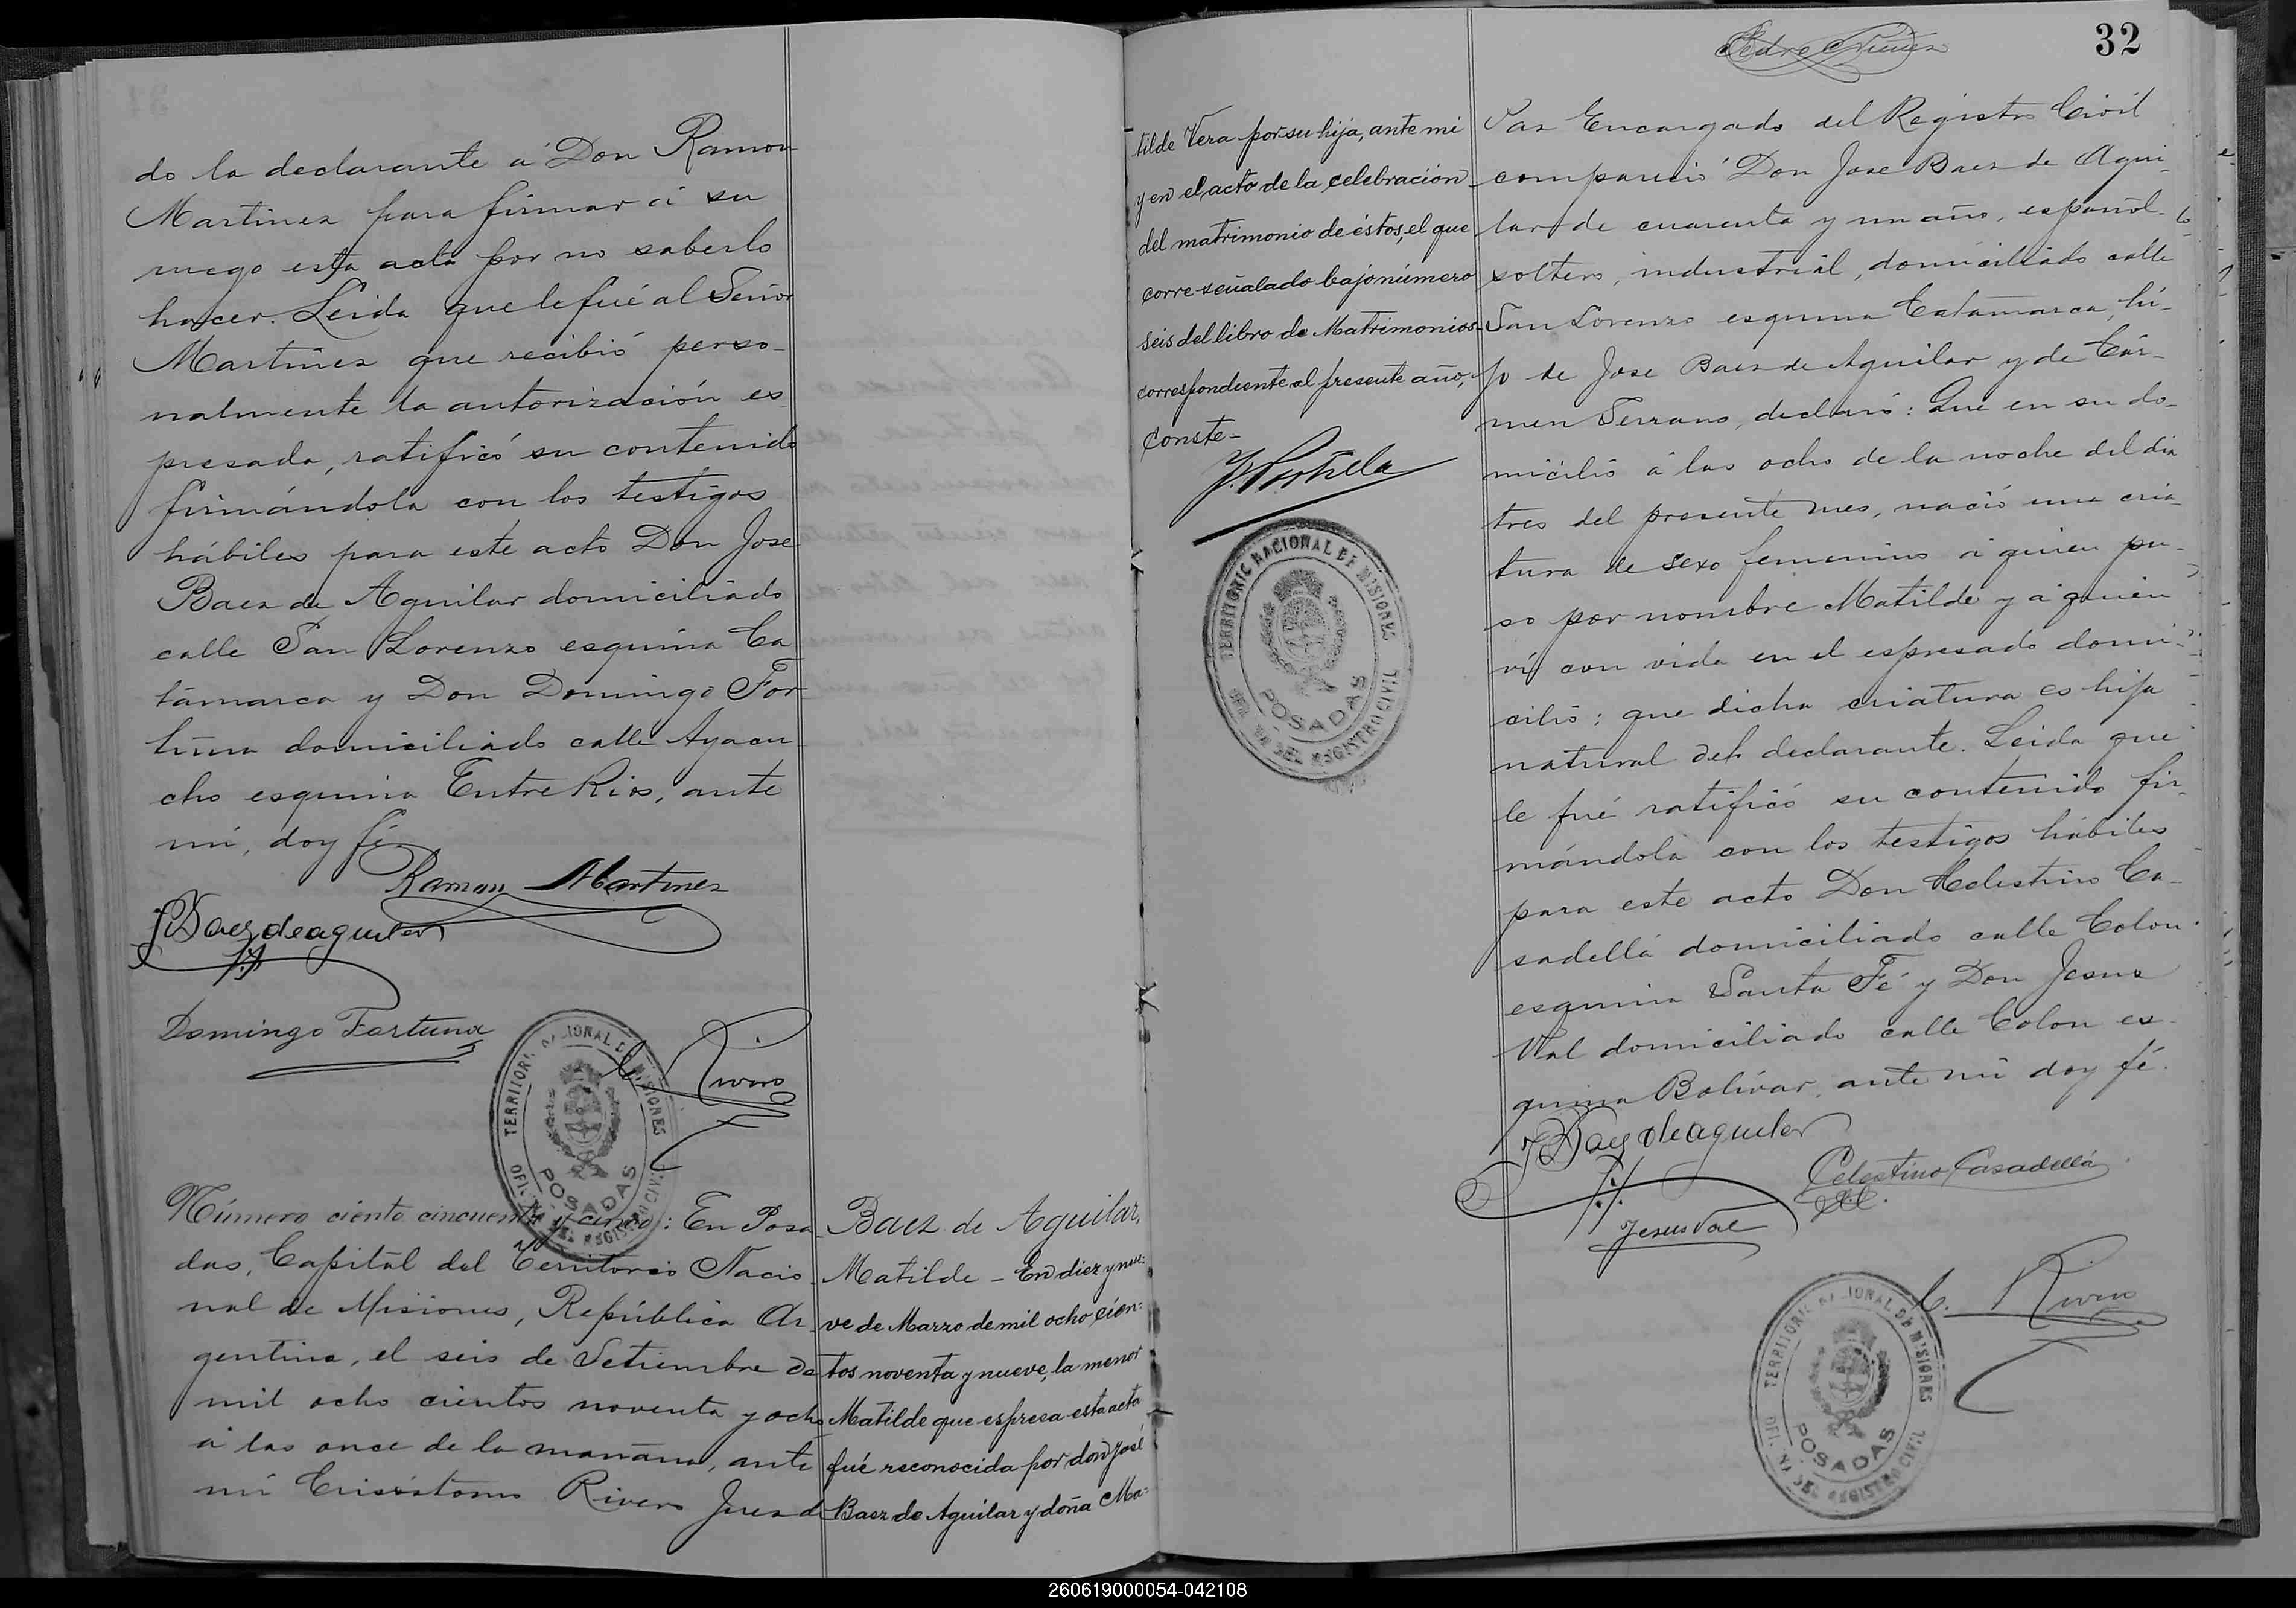 do la declarante á Don Ramon
Martinez para firmar á su
ruego esta acta por no saberlo
hacer. Leida que le fué al Señor
Martinez que recibió perso-
nalmente la autorización es
presada, ratificó su contenido
firmándola con los testigos
hábiles para este acto Don Jose
Baez de Aguilar domiciliado
calle San Lorenzo esquina Ca
tamarca y Don Domingo For
tuna domiciliado calle Ayacu
cho esquina Entre Rios, ante
mí, doy fé.
Ramon Martinez
J Baez de aguilar
Domingo Fortuna
C. Rivero
TERRITORIO NACIONAL DE MISIONES
POSADAS
OFICINA DEL REGISTRO CIVIL
Número ciento cincuenta y cinco: En Posa
das, Capital del Territorio Nacio
nal de Misiones, República Ar
gentina, el seis de Setiembre de
mil ocho cientos noventa y ocho
á las once de la mañana, ante
mí Crisóstomo Rivero Juez d
Baez de Aguilar,
Matilde - En diez y nue:
ve de Marzo de mil ocho cien:
tos noventa y nueve, la menor
Matilde que espresa esta acta
fué reconocida por don José
Baez de Aguilar y doña Ma:
tilde Vera por su hija, ante mi
y en el acto de la celebración
del matrimonio de éstos, el que
corre señalado bajo número
seis del libro de Matrimonios
correspondiente al presente año,
Conste-
TERRITORIO NACIONAL DE MISIONES
POSADAS
OFICINA DEL REGISTRO CIVIL
32
Paz Encargado del Registro Civil
compareció Don Jose Baez de Agui-
lar de cuarenta y un año, español.
soltero, industrial, domiciliado calle
San Lorenzo esquina Catamarca, hi-
jo de Jose Baez de Aguilar y de Cár-
men Serrano, declaró: Que en su do-
micilio á las ocho de la noche del dia
tres del presente mes, nació una cria-
tura de sexo femenino á quien pu-
so por nombre Matilde y á quien
ví con vida en el espresado domi-
cilio; que dicha criatura es hija
natural del declarante. Leida que
le fué ratificó su contenido fir-
mándola con los testigos hábiles
para este acto Don Celestino Ca-
sadellá domiciliado calle Colon
esquina Santa Fé y Don Jesus
Val domiciliado calle Colon es-
quina Bolivar, ante mí doy fé.
J Baez de aguilar
Celestino Casadellá
Jesus Val
C. Rivero
TERRITORIO NACIONAL DE MISIONES
POSADAS
OFICINA DEL REGISTRO CIVIL
260619000054-042108